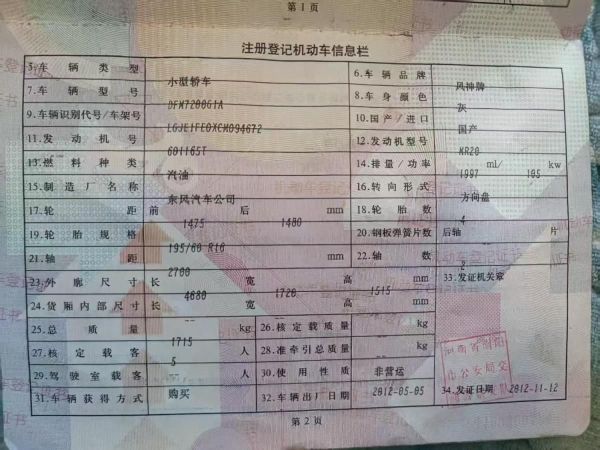 第 1 页
注册登记机动车信息栏
5.车辆类型 小型轿车 6.车辆品牌 风神牌
7.车辆型号 DFM7200G1A 8.车身颜色 灰
9.车辆识别代号/车架号 LGJE1FE0XCM094672 10.国产/进口 国产
11.发动机号 601165T 12.发动机型号 MR20
13.燃料种类 汽油 14.排量/功率 1997 ml/ 105 kw
15.制造厂名称 东风汽车公司 16.转向形式 方向盘
17.轮距 前 1475 后 1480 mm 18.轮胎数 4
19.轮胎规格 195/60 R16 20.钢板弹簧片数 后轴 片
21.轴距 2700 mm 22.轴数 2
23.外廓尺寸 长 4680 宽 1720 高 1515 mm 33.发证机关章
24.货厢内部尺寸 长 宽 高 mm
25.总质量 1715 kg 26.核定载质量 -- kg
27.核定载客 5 人 28.准牵引总质量 -- kg
29.驾驶室载客 -- 人 30.使用性质 非营运
31.车辆获得方式 购买 32.车辆出厂日期 2012-05-05 34.发证日期 2012-11-12
市公安局交
第 2 页